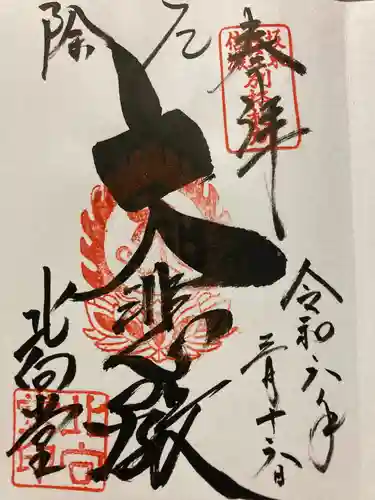 奉拝
令和六年
三月十六日
厄除
大悲殿
北向堂